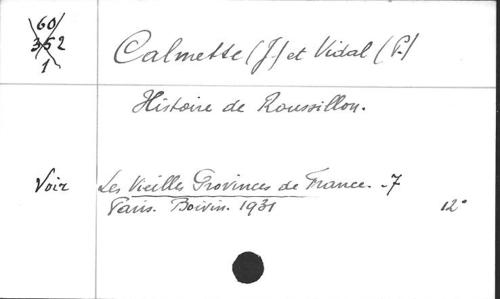 60
352
1
Calmette (J.) et Vidal (P.)
Histoire de Roussillon.
Voir Les Vieilles Provinces de France. - 7
Paris. Boivin. 1931 12°